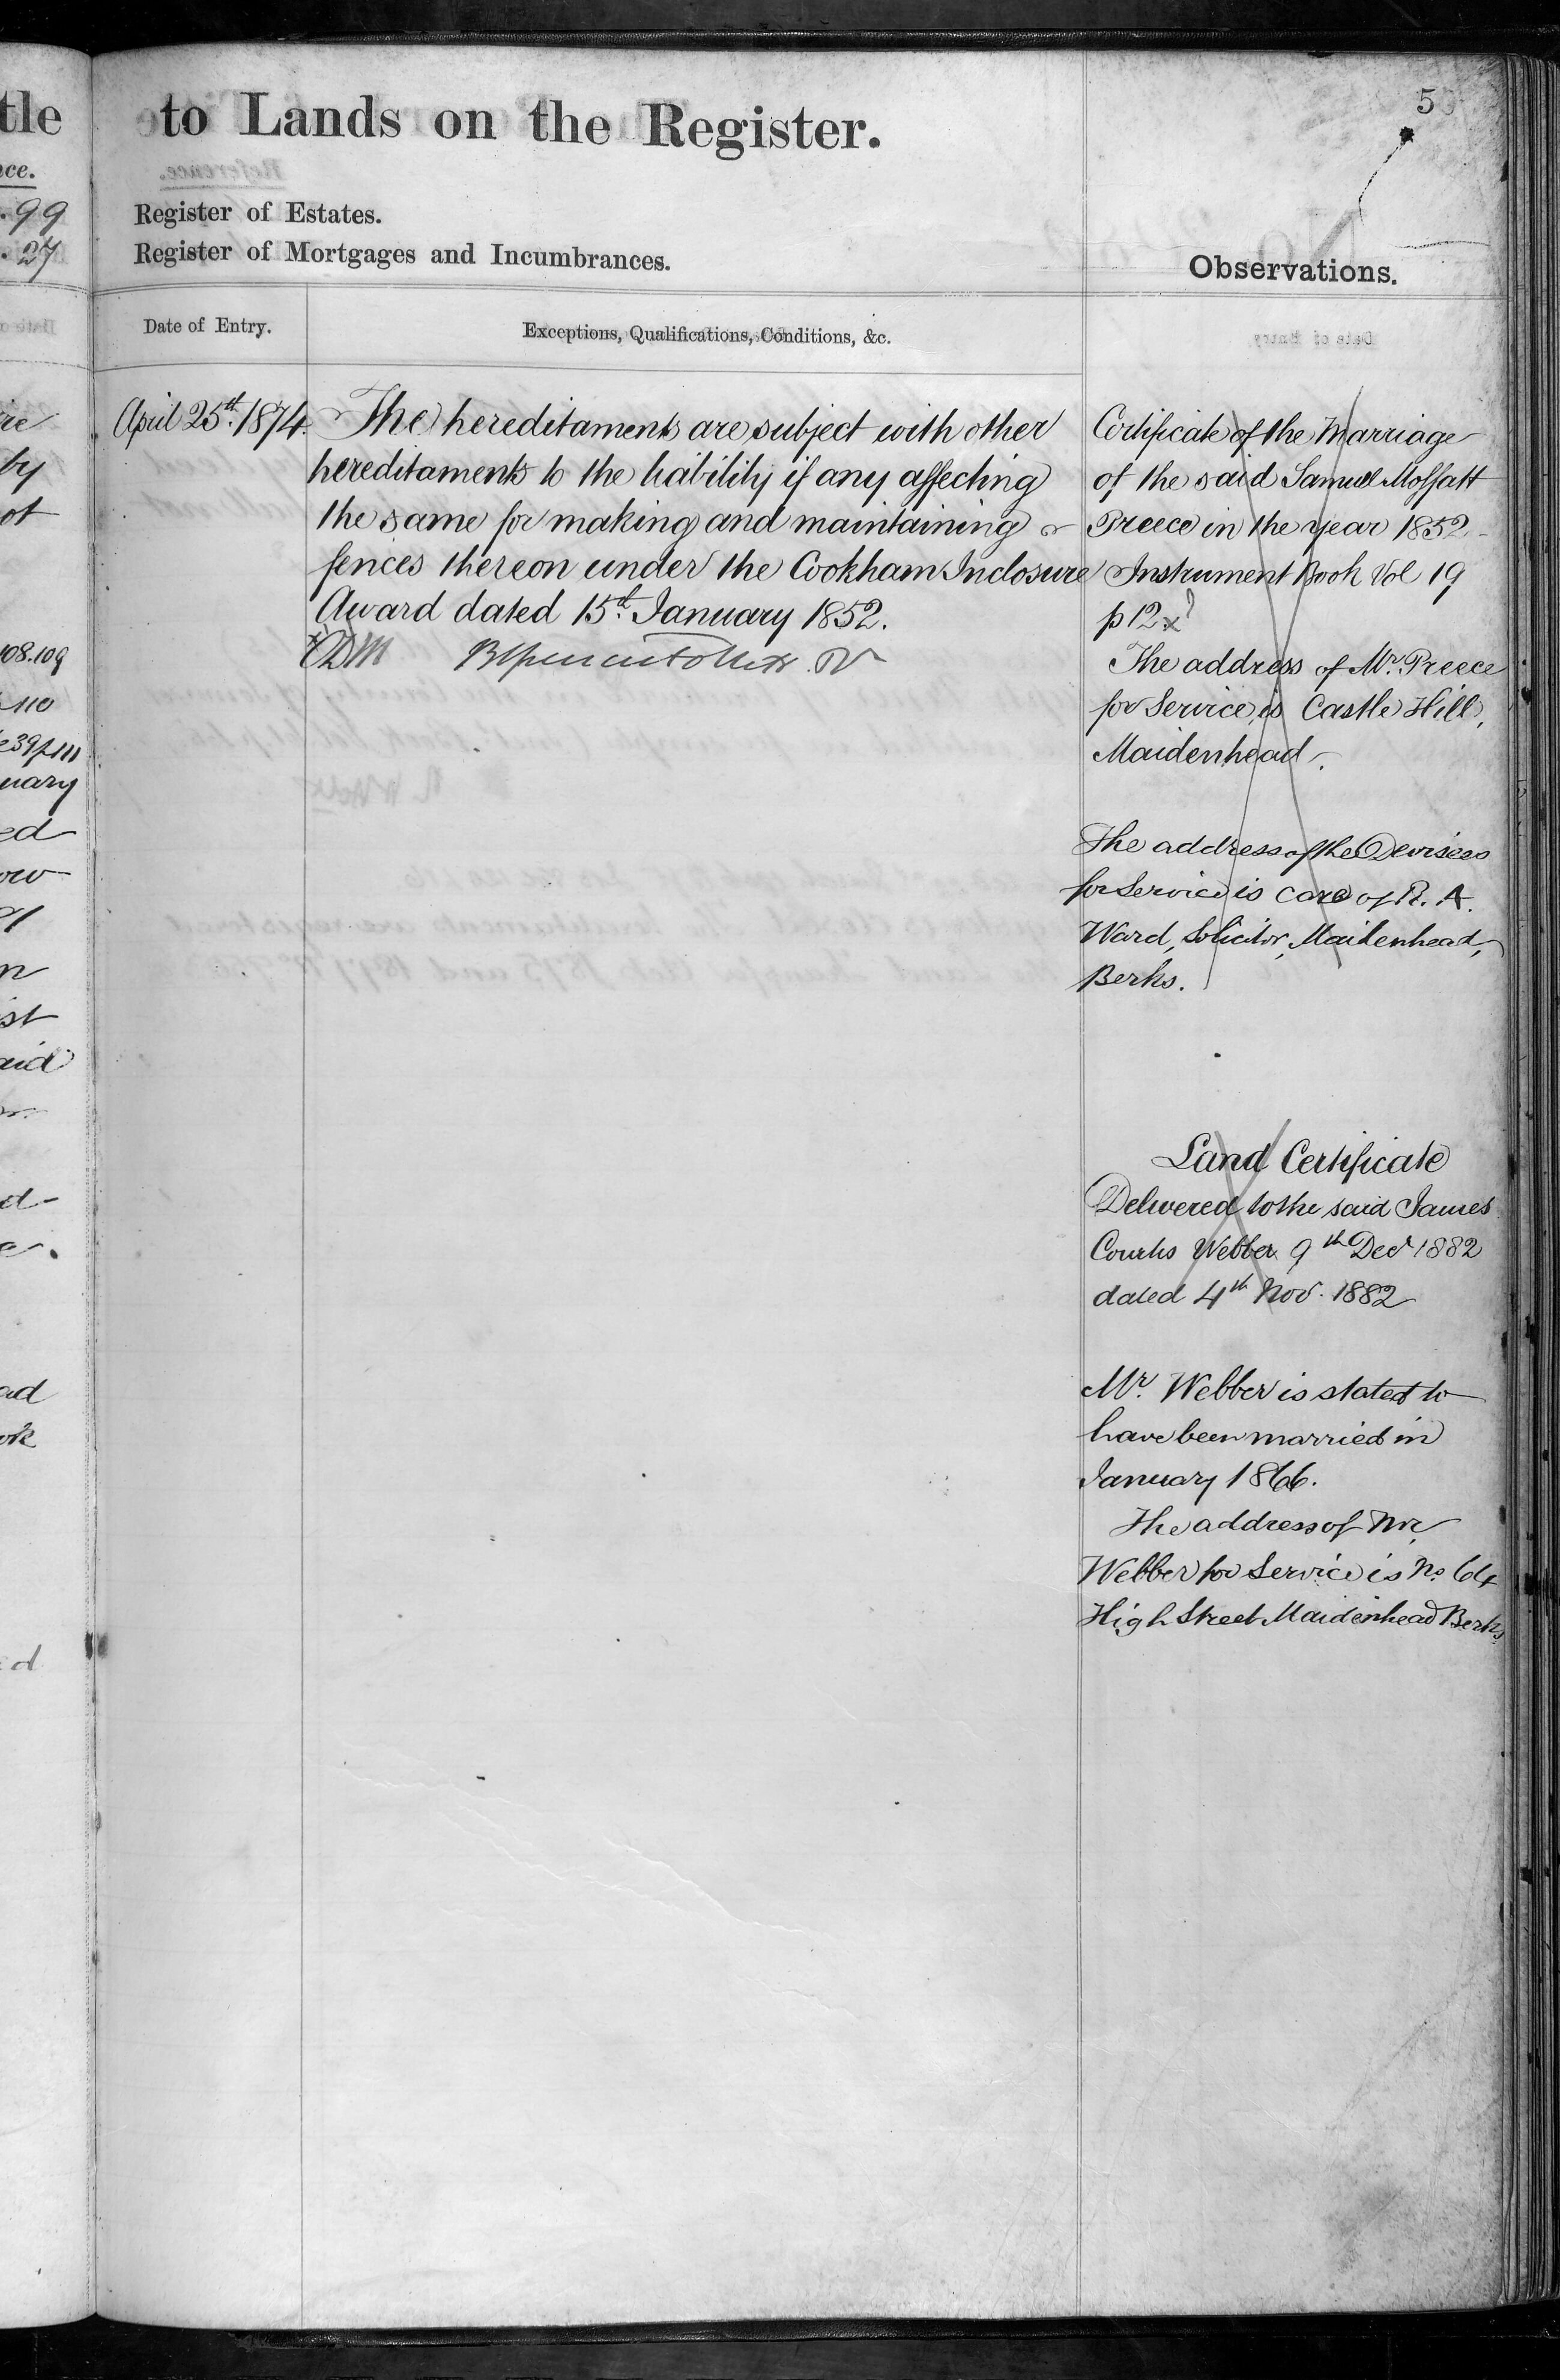 tle
ce.
99
27
108.109
110
39 p 111
uary
ed
ow
n
st
aid
d
ad
ok
ed
to Lands on the Register.
5
Register of Estates.
Register of Mortgages and Incumbrances.
Observations.
Date of Entry.
Exceptions, Qualifications, Conditions, &c.
April 25th. 1874.
The hereditaments are subject with other
hereditaments to the liability if any affecting
the same for making and maintaining
fences thereon under the Cookham Inclosure
Award dated 15th. January 1852.
Certificate of the Marriage
of the said Samuel Moffatt
Preece in the year 1852
Instrument Book Vol 19
p 12
The address of Mr. Preece
for Service is Castle Hill,
Maidenhead.
The address of the Devisees
for Service is care of R. A.
Ward, Solicitor, Maidenhead,
Berks.
Land Certificate
Delivered to the said James
Webber 9th Decr 1882
dated 4th Nov. 1882
Mr. Webber is stated to
have been married in
January 1866.
The address of Mr
Webber for Service is No 64
High Street Maidenhead Berks